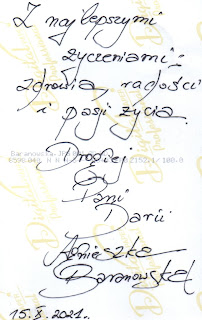 Z najlepszymi
życzeniami:
zdrowia, radości
i pasji życia.
Drogiej
Pani
Darii
Agnieszka
Baranowska
15.8.2021r.